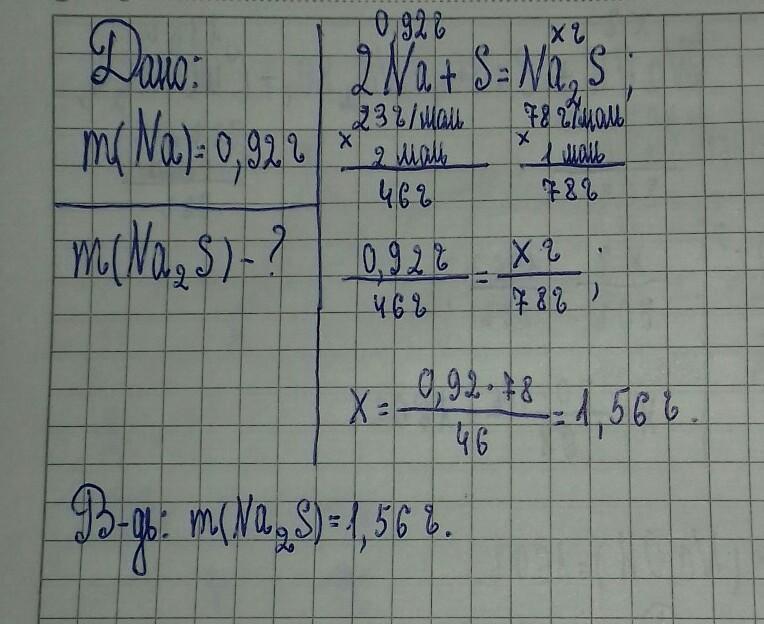 Дано:
m(Na)=0,92г
m(Na₂S)-?
0,92г xг
2Na+S=Na₂S;
23г/моль 78г/моль
x 2 моль x 1 моль
46г 78г
0,92г/46г = Xг/78г;
X=0,92·78/46=1,56г.
В-дь: m(Na₂S)=1,56г.